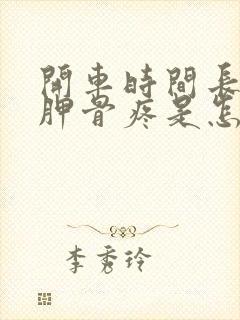 開車時間長
胛骨疼是怎
李秀玲